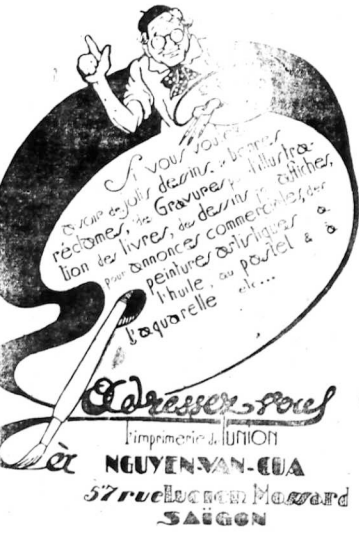 Si vous voulez
avoir de jolis dessins, de bonnes
réclames, de Gravures pr l'illustra-
tion des livres, des dessins pr affiches,
pour annonces commerciales, des
peintures artistiques à
l'huile, au pastel & à
l'aquarelle etc...
Adressez-vous
à l'imprimerie de l'UNION
NGUYEN-VAN-CUA
57 rue Lucien Mossard
SAÏGON